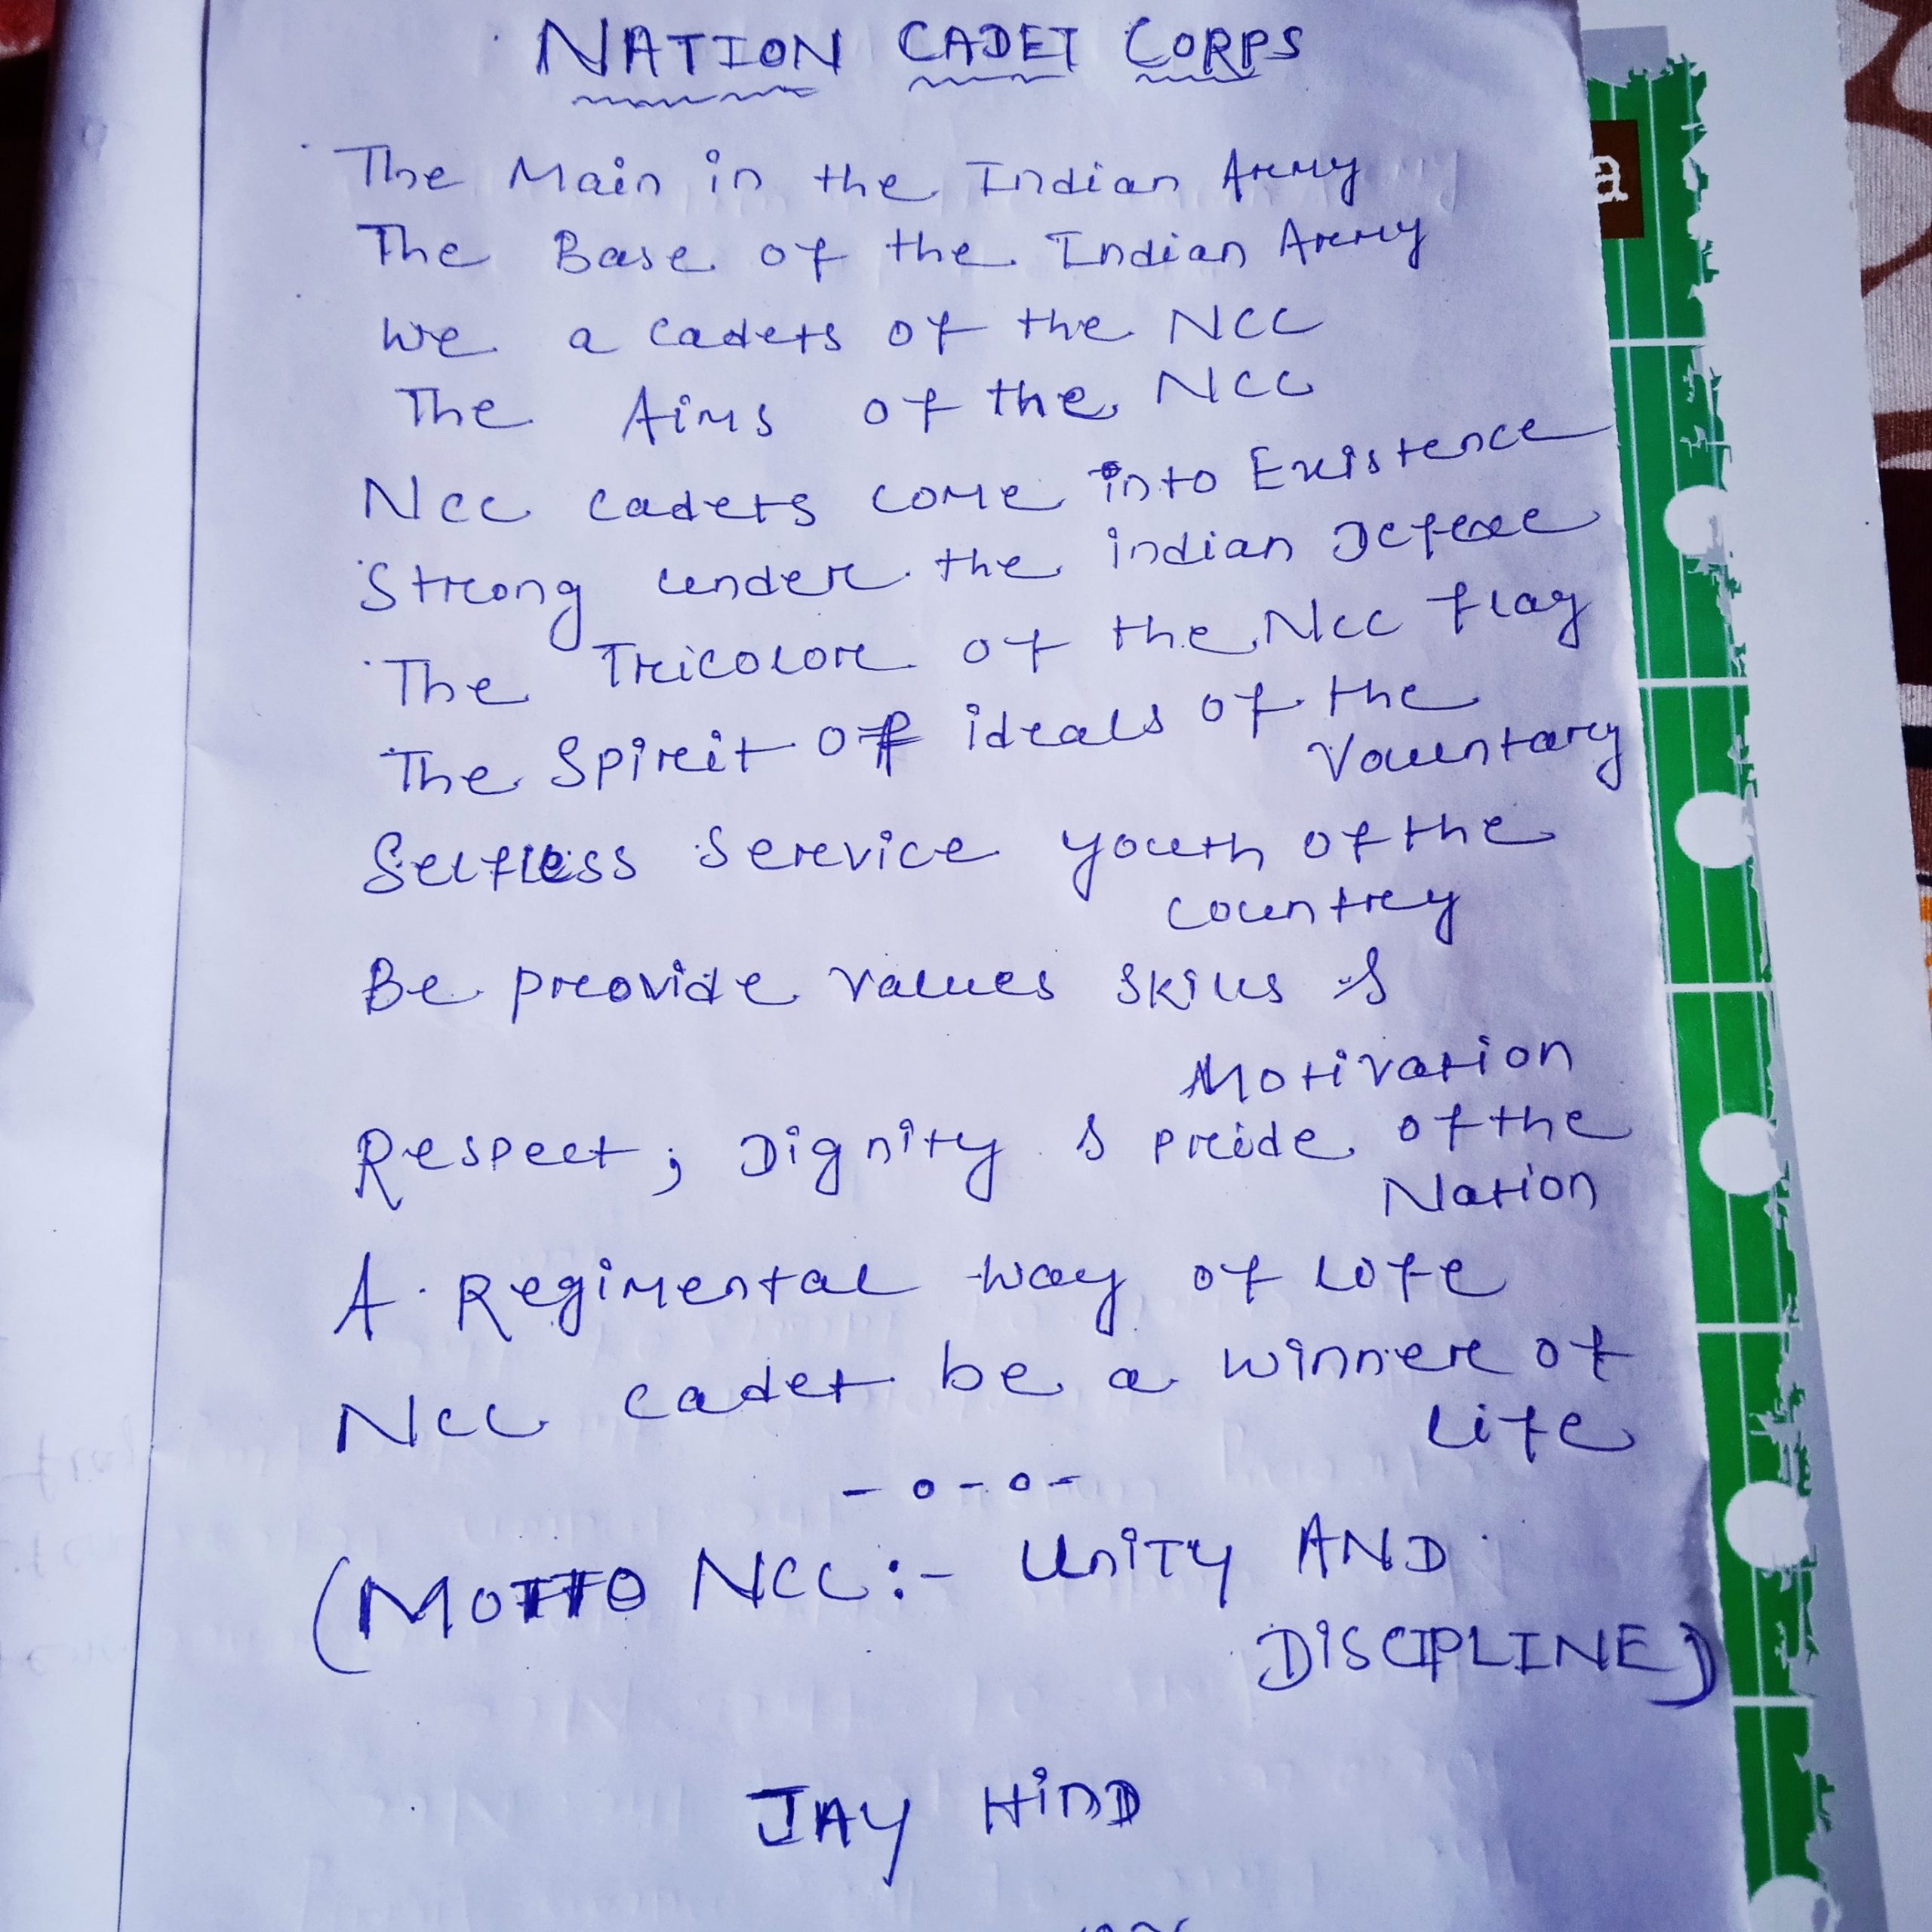 NATION CADET CORPS
The Main in the Indian Army
The Base of the Indian Army
We a cadets of the NCC
The Aims of the NCC
NCC cadets come into Existence
Strong under the indian Defence
The Tricolor of the NCC flag
The Spirit of ideals of the
Voluntary
Selfless Service youth of the
country
Be provide values skills &
Motivation
Respect; Dignity & pride of the
Nation
A Regimental way of life
NCC cadet be a winner of
life
- o - o -
(MOTTO NCC:- UNITY AND
DISCIPLINE)
JAY HIND
a